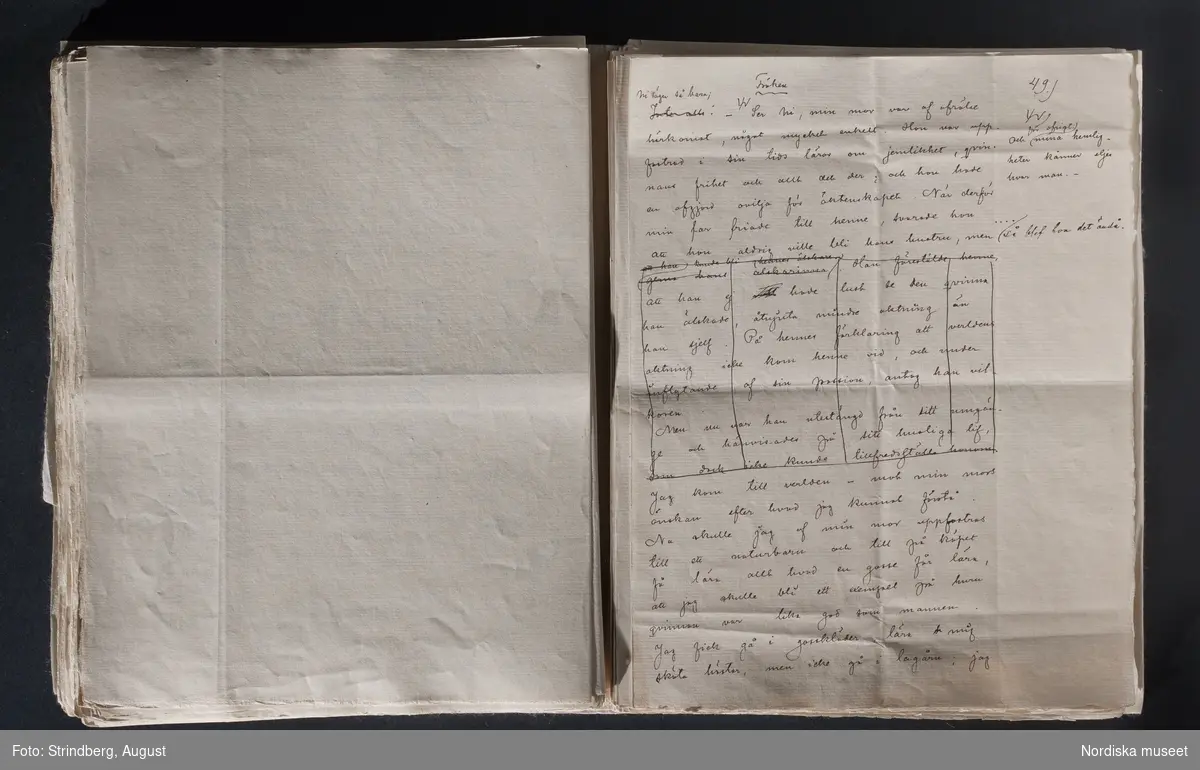 Fröken
49)
Ni säga så bara;
Inte alls! – Ser Ni, min mor var af ofrälse
härkomst, något mycket enkelt. Hon var upp-
fostrad i sin tids läror om jemlikhet, qvin-
nans frihet och allt det der; och hon hade
en afgjord ovilja för äktenskapet. När derför
min far friade till henne, svarade hon
att hon aldrig ville bli hans hustru, men
så blef hon det ändå.
och mina hemlig-
heter känner eljes
hvar man. –
han kunde bli hennes älskare
gerna hans älskarinna, Han föreställde henne,
att han ej hade lust se den qvinna
han älskade, åtnjuta mindre aktning än
han sjelf. På hennes förklaring att verldens
aktning icke kom henne vid, och under
inflytande af sin passion, antog han vil-
koren.
Men nu var han utestängd från sitt umgän-
ge och hänvisades på sitt husliga lif,
som dock icke kunde tillfredsställa honom.
Jag kom till verlden – mot min mors
önskan efter hvad jag kunnat förstå.
Nu skulle jag af min mor uppfostras
till ett naturbarn och till på köpet
få lära allt hvad en gosse får lära,
att jag skulle bli ett exempel på huru
qvinnan var lika god som mannen.
Jag fick gå i gosskläder, lära mig
sköta hästar, men icke gå i lagårn; jag
Foto: Strindberg, August
Nordiska museet